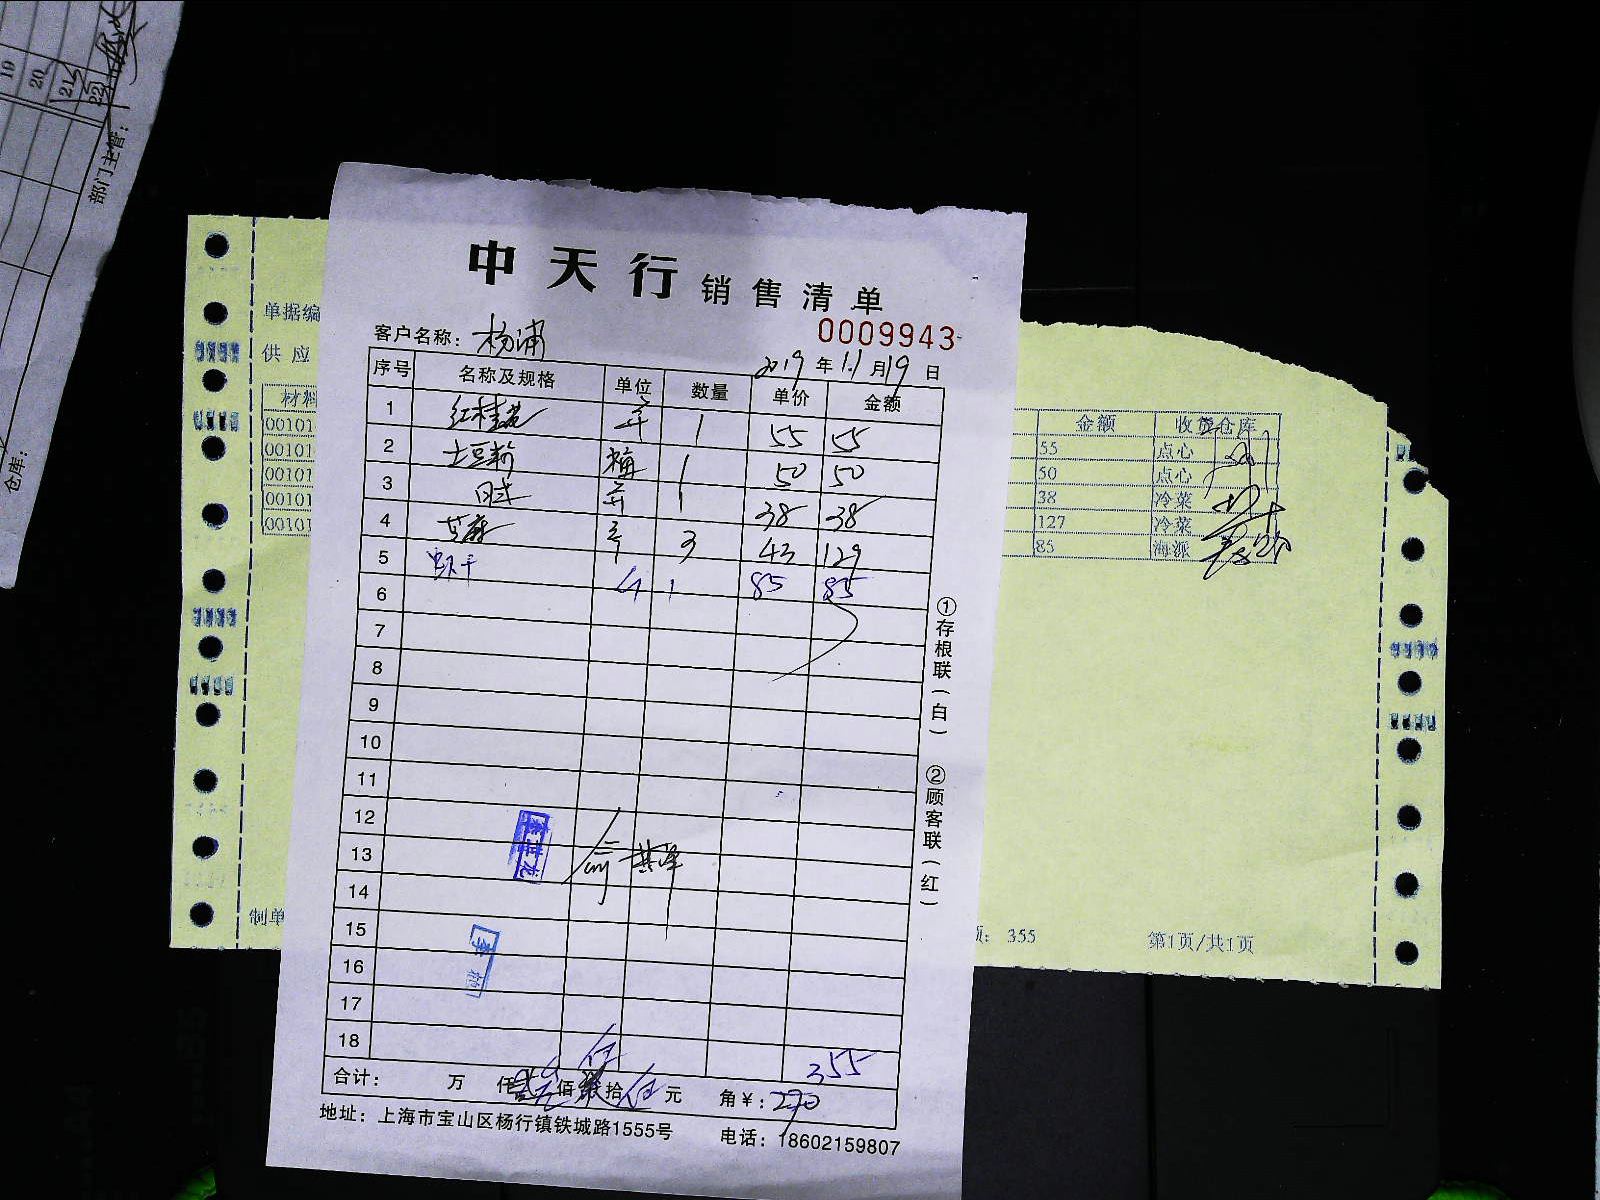 19
20
21
22
部门主管：
仓库：
中天行 销售清单
0009943
客户名称：杨浦
2019 年 11 月 19 日
序号 名称及规格 单位 数量 单价 金额
1 红桂花 1 55 55
2 土豆粉 桶 1 50 50
3 1 38 38
4 芝麻 3 43 129
5 虾干 1 85 85
6
7
8
9
10
11
12
13
14
15
16
17
18
355
合计： 万 仟 佰 拾 伍 元 角 ¥：270
地址：上海市宝山区杨行镇铁城路1555号 电话：18602159807
①存根联(白) ②顾客联(红)
单据编
供应
材料
00101
00101
00101
00101
00101
制单
金额 收货仓库
55 点心
50 点心
38 冷菜
127 冷菜
85 海派
额：355 第1页/共1页